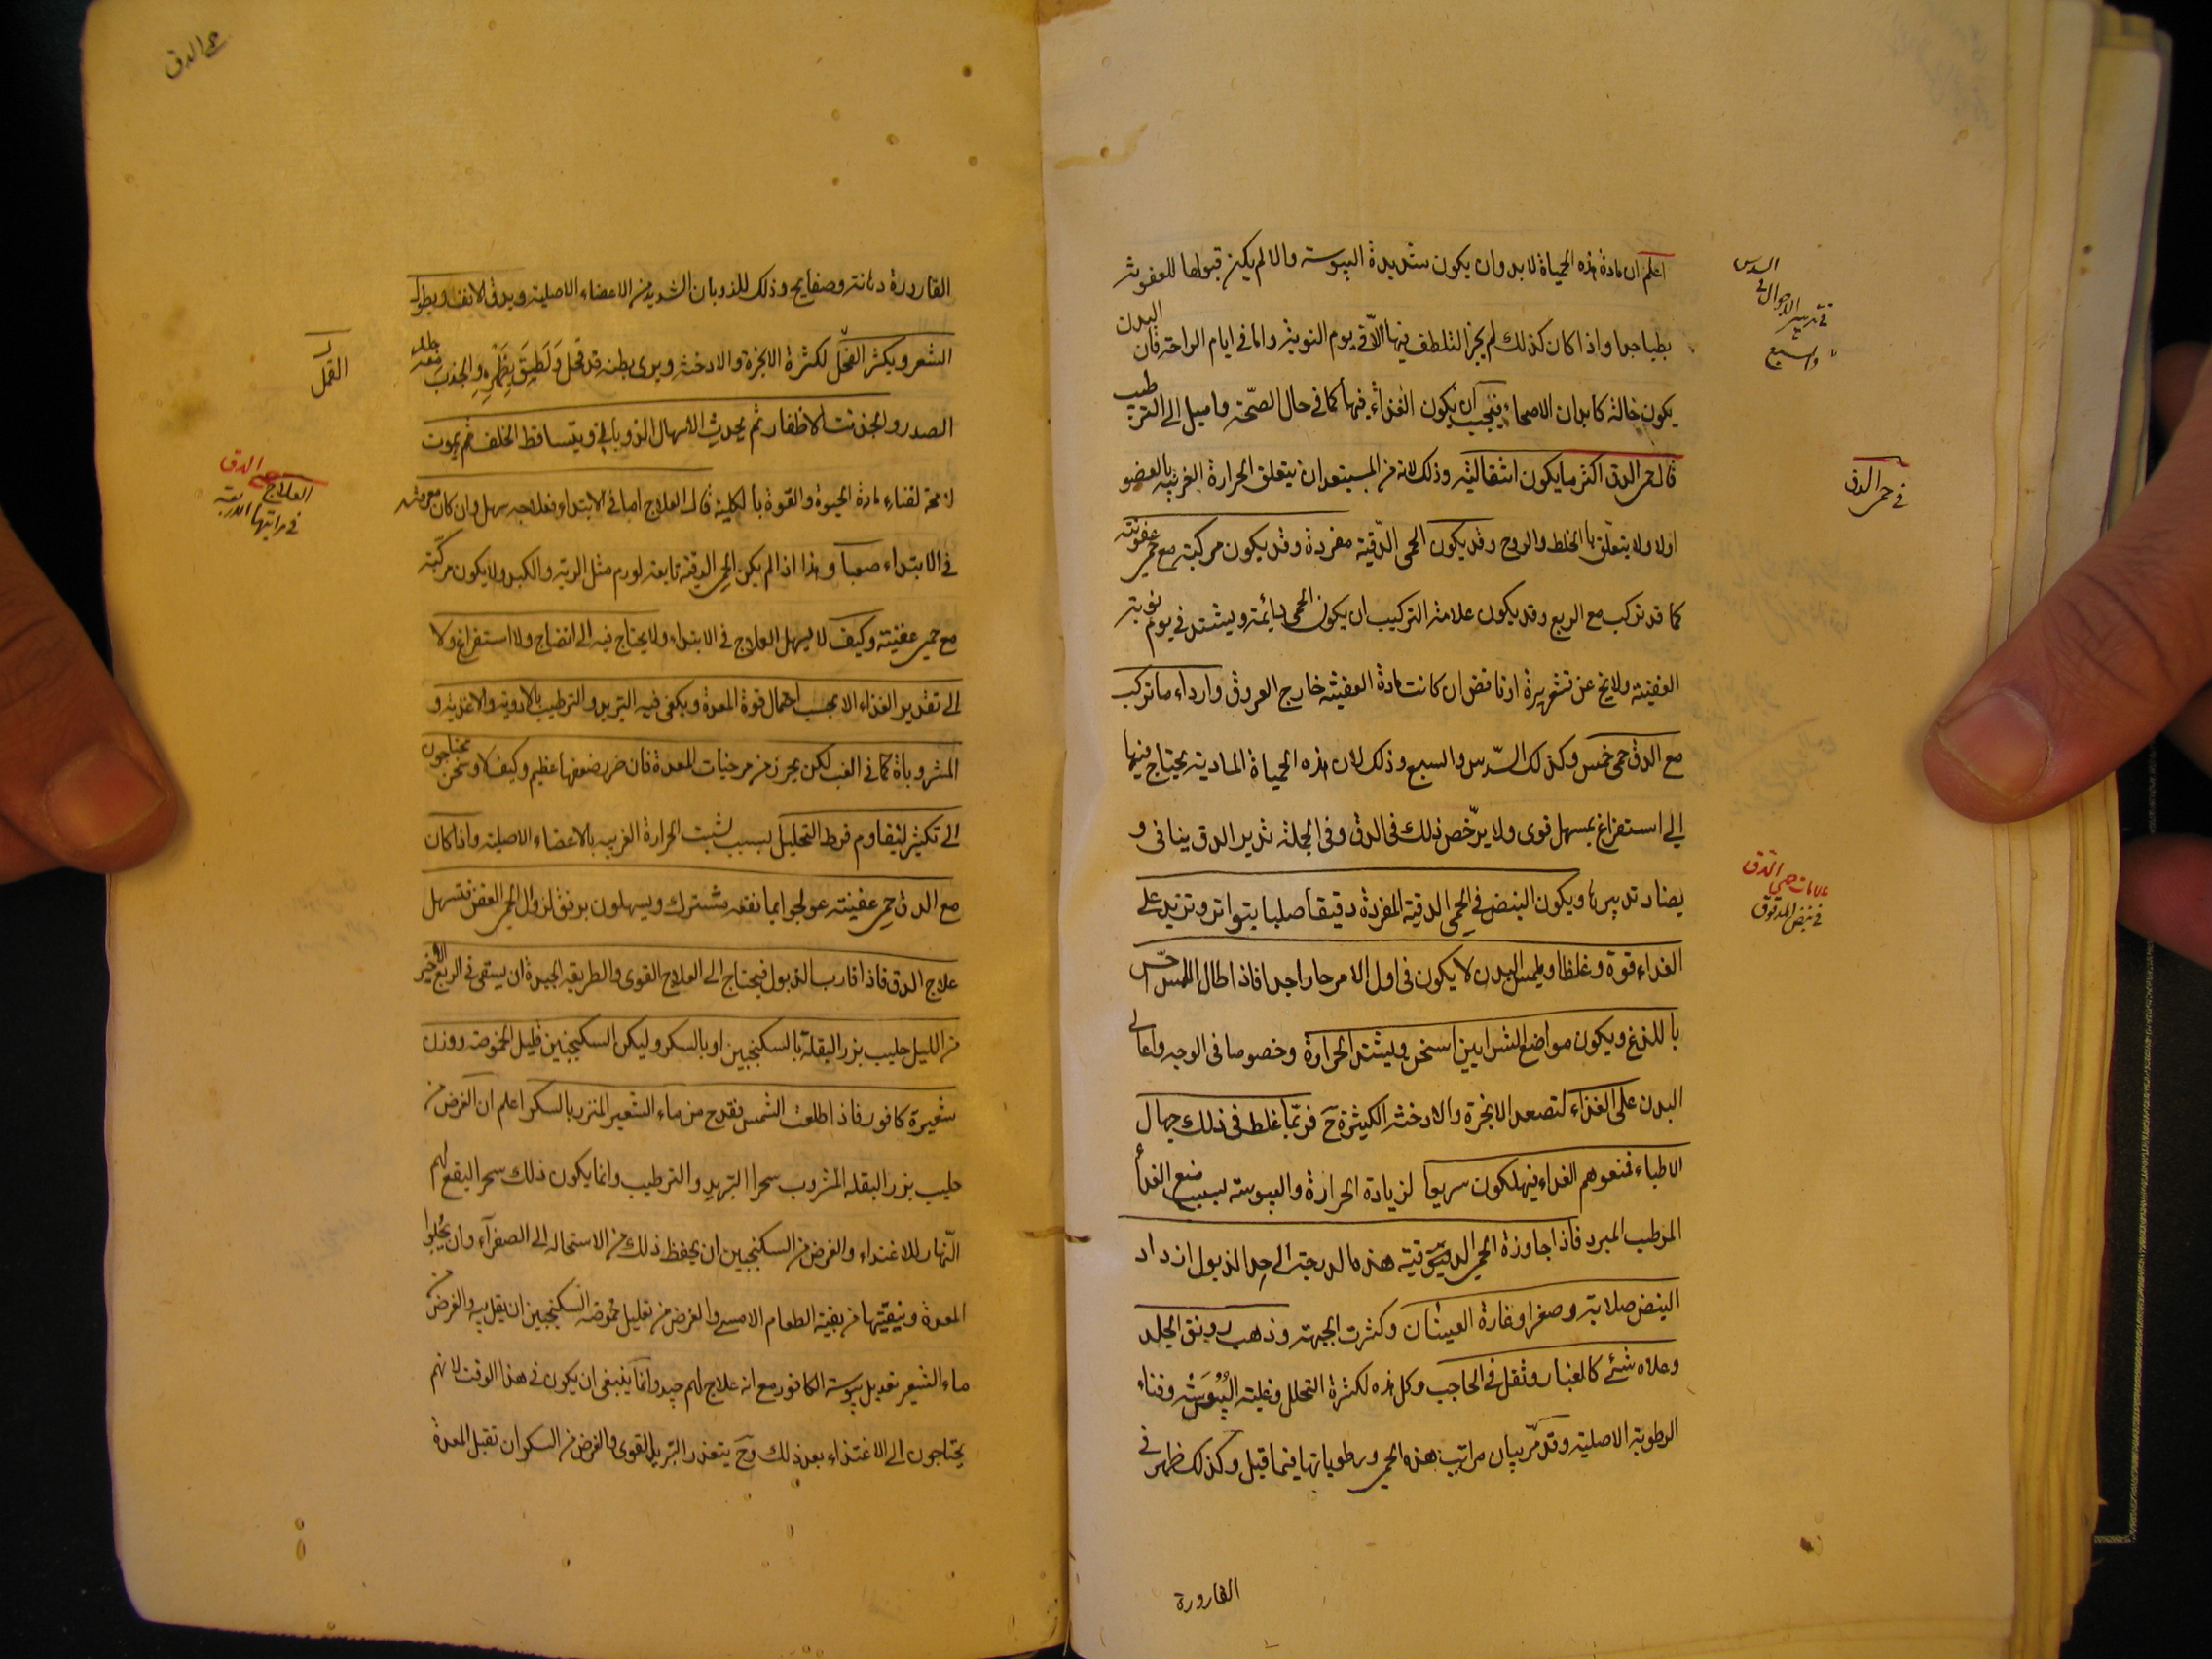 اعلم ان مادة هذه الحمياة لابد وان يكون شديدة اليبوسته والا لم يكن قبولها للعفونة
بطيا جدا واذا كان كذلك لم يجز التلطف فيها الا فى يوم النوبة واما فى ايام الراحة فان البدن
يكون حاله كابدان الاصحاء فيجب ان يكون الغذاء فيها كما فى حال الصحة وميل الى الترطيب
قال حمى الدق اكثر ما يكون انتقالية وذلك لانه من المستبعد ان يتعلق الحرارة الغريبة بالعضو
اولا ولا يتعلق بالخلط والروح وقد يكون الحمى الدقية مفردة وقد يكون مركبة مع حمى عفونته
كما قد تركب مع الربع وقد يكون علامة التركيب ان يكون الحمى دائمة ويشتد فى يوم نوبته
العفنية ولا يخ عن قشعريرة او نافض ان كانت مادة العفنية خارج العروق وارداء ما تركب
مع الدق حمى خمس وكذلك السدس والسبع وذلك لان هذه الحمياة المادية يحتاج فيها
الى استفراغ بمسهل قوى ولا يرخص ذلك فى الدق وفى الجملة تدبير الدق ينافى و
يضاد تدبيرها ويكون النبض فى الحمى الدقية المفردة دقيقا صلبا يتواتر وتزيد على
الغداء قوة وغلظا وملمس البدن لا يكون فى اول الامر حارا جدا فاذا طال اللمس حس
باللذع ويكون مواضع الشرايين اسخن ويشتد الحرارة وخصوصا فى الوجه واعالى
البدن على الغذاء لتصعد الابخرة والادخنة الكثيرة ح فربما غلط فى ذلك جهال
الاطباء فمنعوهم الغداء فيهلكون سريعا لزيادة الحرارة واليبوسته بسبب منع الغذاء
المرطب المبرد فاذا جاوزة الحمى الدقية هذه الدرجة الى حد الذبول ازداد
النبض صلابة وصغرا وغارة العينان وكثرت الجبهة وذهب رونق الجلد
وعلاه شئ كالغبار وثقل فى الحاجب وكل هذه لكثرة التحلل وغلبة اليبوسة وفناء
الرطوبة الاصلية وقد مر بيان مراتب هذه الحمى ورطوباتها فيما قيل وكذلك ظهر فى
القارورة
السدس
فى تدبير الاحوال فى
والسبع
فى حمى الدق
علامات حمى الدق
فى نبض المدقوق
حمى الدق
القارورة دهانة وصفايح وذلك للذوبان الشديد من الاعضاء الاصلية ويدق الانف ويطول
الشعر ويكثر القمل لكثرة الابخرة والادخنة ويرى بطنه قد قحل ولطيق بظهره وانجذب معه جلد
الصدر وانجذبت الاظفار ثم يحدث الاسهال الذوبانى ويتساقط الخلف ثم يموت
لا محة لفناء مادة الحيوة والقوة بالكلية قال العلاج اما فى الابتداء فعلاجه سهل وان كان معرفته
فى الابتداء صعبا وهذا اذا لم يكن الحمى الدقية تابعة لورم مثل الرية والكبد ولا يكون مركبة
مع حمى عفنية وكيف لا يسهل العلاج فى الابتداء ولا يحتاج فيه الى انضاج ولا استفراغ ولا
الى تقدير الغذاء الا بحسب احتمال قوة المعدة ويكفى فيه التبريد والترطيب بالادوية والاغذية و
المشروباة كما فى الغب لكن يحرز من مرخيات المعدة فان ضرر ضعفها عظيم وكيف لا ونحن محتاجون
الى تكثير ليقاوم فرط التحليل بسبب تشبث الحرارة الغريبه بالاعضاء الاصلية واذا كان
مع الدق حمى عفنية عولجوا بما نفعه مشترك ويسهلون برفق لزوال الحمى العفن فتسهل
علاج الدق فاذا قارب الذبول فيحتاج الى العلاج القوى والطريقه الجيدة ان يسقى فى الربع الاخير
من الليل حليب بزر البقلة بالسكنجبين او بالسكر وليكن السكنجبين قليل الحموضة ووزن
شعيرة كافور فاذا طلعت الشمس فقدح من ماء الشعير المبزر بالسكر اعلم ان الغرض من
حليب بزر البقله المشروب سحرا التبريد والترطيب وانما يكون ذلك سحرا ليقع لهم
النهار للاغتداء والغرض من السكنجبين ان يحفظ ذلك من الاستحاله الى الصفراء وان يجلوا
المعدة وينقيها من بقية الطعام الامسى والغرض من تقليل حموضه السكنجبين ان يقل يبسه والغرض من
ماء الشعير تعديل يبوسته الكافور مع انه علاج لهم جيد وانما ينبغى ان يكون فى هذا الوقت لانهم
يحتاجون الى الاغتذاء بعد ذلك وح يتعذر التبريد القوى والغرض من السكر ان تقبل المعدة
القمل
العلاج حمى الدق
فى مراتبها الاربعة